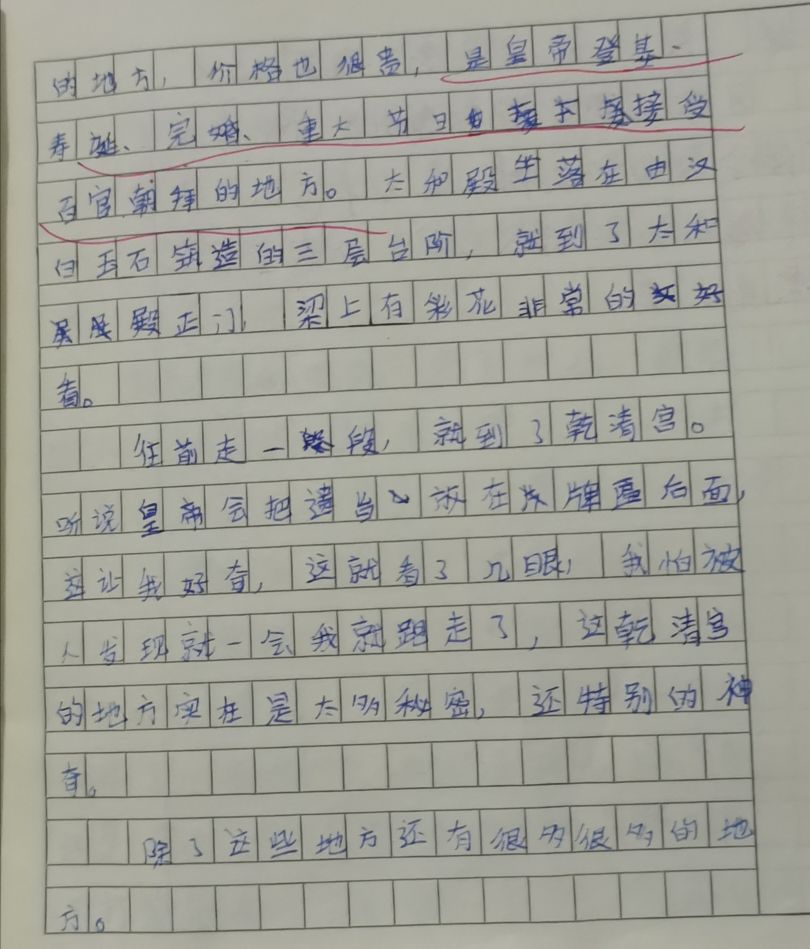 的地方，价格也很贵，是皇帝登基、
寿诞、完婚、重大节日接受
百官朝拜的地方。太和殿坐落在由汉
白玉石铸造的三层台阶，就到了太和
殿正门，梁上有彩花非常的好
看。
往前走一段，就到了乾清宫。
听说皇帝会把遗当放在牌匾后面，
这让我好奇，这就看了几眼，我怕被
人发现就一会我就跑走了，这乾清宫
的地方实在是太多秘密，还特别的神
奇。
除了这些地方还有很多很多的地
方。